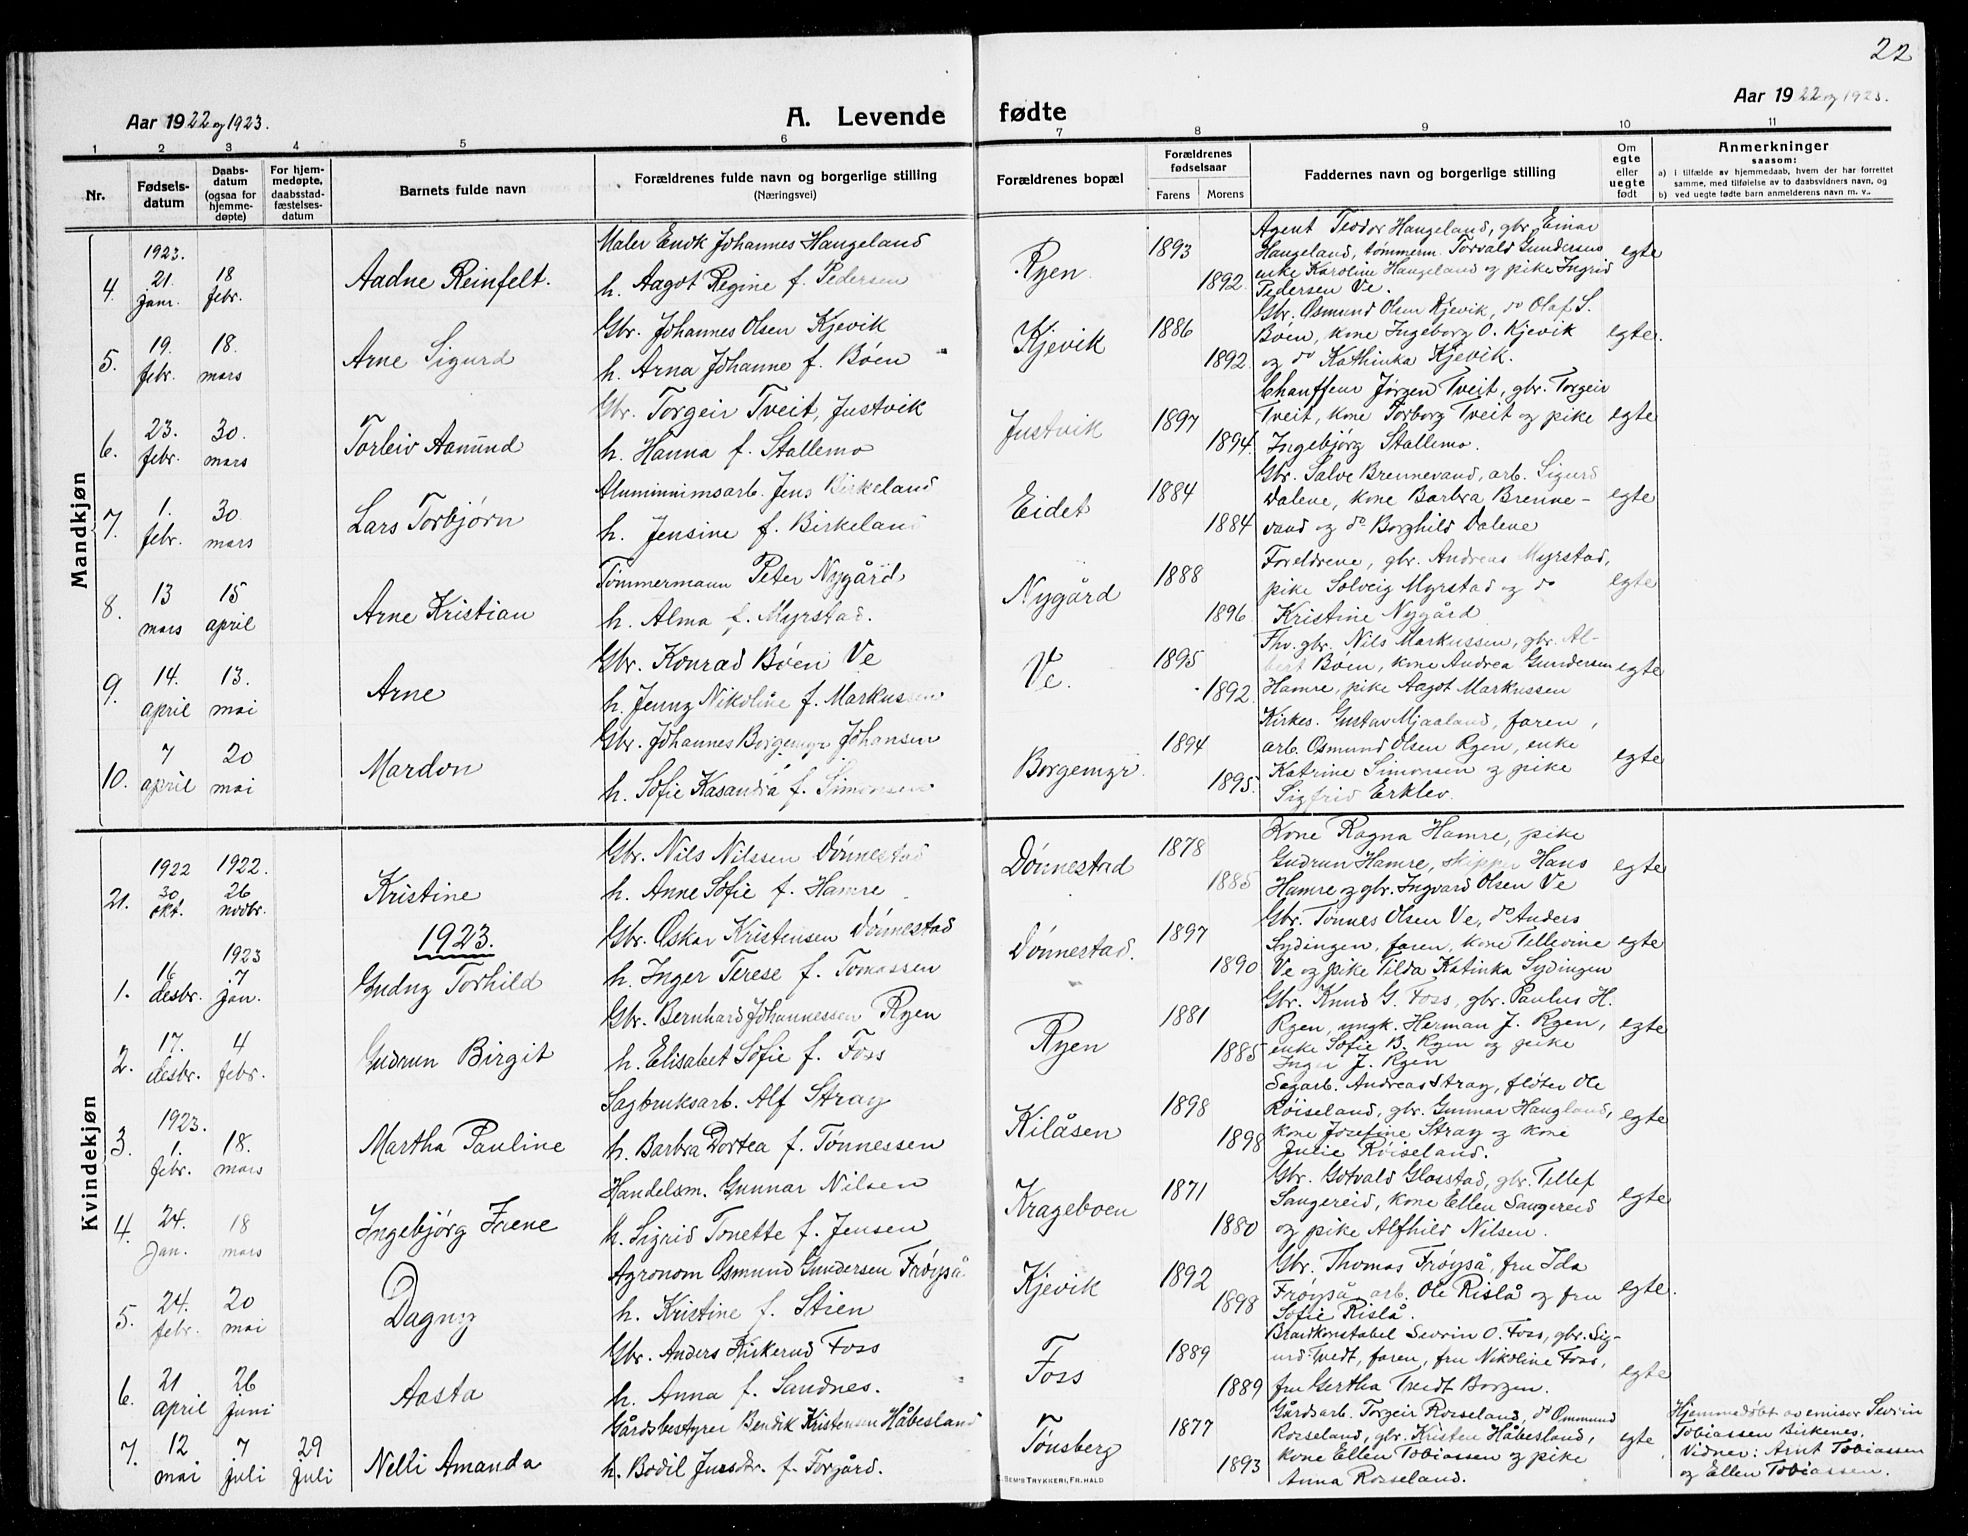 22
Aar 1922 og 1923.
A. Levende fødte
Aar 1922 og 1923.
1 2 3 4 5 6 7 8 9 10 11
Nr.
Fødsels-
datum
Daabs-
datum
(ogsaa for
hjemme-
døpte)
For hjem-
medøpte,
daabsstad-
fæstelses-
datum
Barnets fulde navn
Forældrenes fulde navn og borgerlige stilling
(Næringsvei)
Forældrenes bopæl
Forældrenes
fødselsaar
Farens Morens
Faddernes navn og borgerlige stilling
Om
egte
eller
uegte
født
Anmerkninger
saasom:
a) i tilfælde av hjemmedaab, hvem der har forrettet
samme, med tilføielse av to daabsvidners navn, og
b) ved uegte fødte barn anmelderens navn m. v..
Mandkjøn
1923.
4. 21. janr. 18 febr.
Aadne Reinfelt.
Maler Johannes Haugeland
h. Aagot Regine f. Pedersen
Ryen
1893
1892
Agent Teodor Haugeland, gbr. Einar
Haugeland, tømmerm. Torvald Gundersen
enke Karoline Haugeland og pike Ingrid
Pedersen Ve.
egte
5. 19. febr. 18. mars
Arne Sigurd
Gbr. Johannes Olsen Kjevik
h. Arna Johanne f. Bøen
Kjevik
1886
1892
Gbr. Osmund Olsen Kjevik, do Olaf S.
Bøen, kone Ingeborg O. Kjevik
og do Kathinka Kjevik.
egte.
6. 23. febr. 30. mars
Torleiv Aanund
Gbr. Torgeir Tveit, Justvik
h. Hanna f. Stallemo
Justvik
1897
1894.
Chauffeur Jørgen Tveit, gbr. Torgeir
Tveit, kone Torborg Tveit og pike
Ingebjørg Stallemo.
egte
7. 1. febr. 30 mars
Lars Torbjørn
Aluminiumsarb. Jens Birkeland
h. Jensine f. Birkeland
Eidet
1884
1884
Gbr. Salve Brennevand, arb. Sigurd
Dalene, kone Barbra Brenne-
vand og do Borghild Dalene
egte
8. 13 mars 15 april
Arne Kristian
Tømmermann Peter Nygård
h. Alma f. Myrstad.
Nygård
1888
1896
Foreldrene, gbr. Andreas Myrstad,
pike Solveig Myrstad og do
Kristine Nygård
egte
9. 14. april 13. mai
Arne
Gbr. Konrad Bøen Ve
h. Jenny Nikoline f. Markussen
Ve.
1895
1892
Fhv. gbr. Nils Markussen, gbr. Al-
bert Bøen, kone Andrea Gundersen
Hamre, pike Aagot Markussen
egte
10. 7 april 20 mai
Mardon
Gbr. Johannes Borgemyr Johansen
h. Sofie Kasandra f. Simonsen
Borgemyr.
1894
1895.
Kirkes. Gustav Mjaaland, faren,
arb. Osmund Olsen Ryen, enke
Katrine Simonsen og pike
Sigfrid Erklev.
egte
Kvindekjøn
1922 1922.
21. 30 okt. 26 novbr.
Kristine
Gbr. Nils Nilssen Dønnestad
h. Anne Sofie f. Hamre
Dønnestad
1878
1885
Kone Ragna Hamre, pike
Gudrun Hamre, skipper Hans
Hamre og gbr. Ingvard Olsen Ve
egte
1923.
1923
1. 16 desbr. 7 jan.
Gudny Torhild
Gbr. Oskar Kristensen Dønnestad
h. Inger Terese f. Tomassen
Dønnestad.
1897
1890
Gbr. Tønnes Olsen Ve, do Anders
Sydingen, faren, kone Tellevine
Ve og pike Tilda Katinka Sydingen
egte
2. 17. desbr. 4 febr.
Gudrun Birgit
Gbr. Bernhard Johannessen Ryen
h. Elisabet Sofie f. Foss
Ryen
1881
1885
Gbr. Knud G. Foss, gbr. Paulus H.
Ryen, ungk. Herman J. Ryen,
enke Sofie B. Ryen og pike
Inger J. Ryen
egte
1923.
3. 1. febr. 18. mars
Martha Pauline
Sagbruksarb. Alf Stray
h. Barbra Dortea f. Tønnessen
Kilåsen
1898
1898
Sagarb. Andreas Stray, fløter Ole
Røiseland, gbr. Gunnar Haugland,
kone Josefine Stray og kone
Julie Røiseland.
egte
4. 24. jan. 18 mars
Ingebjørg Irene
Handelsm. Gunnar Nilsen
h. Sigrid Tonette f. Jensen
Krageboen
1871
1880
Gbr. Gotvald Glosstad, gbr. Tellef
Saugereid, kone Ellen Saugereid
og pike Alfhild Nilsen.
egte
5. 24. febr. 20 mai
Dagny
Agronom Osmund Gundersen Frøyså
h. Kristine f. Stien
Kjevik
1892
1898
Gbr. Thomas Frøyså, fru Ida
Frøyså, arb. Ole Rislå og fru
Sofie Rislå.
egte.
6. 21 april 26 juni
Aasta
Gbr. Anders Kirkerud Foss
h. Anna f. Sandnes.
Foss
1889
1889
Brandkonstabel Sevrin O. Foss, gbr. Sig-
urd Tvedt, faren, fru Nikoline Foss,
fru Gertha Tvedt Borgen.
egte
7. 12 mai 7 juli 29 juli
Nelli Amanda
Gårdsbestyrer Bendik Kristensen Håbesland
h. Bodil Jursdtr. f. Torgård.
Tønsberg
1877
1893
Gårdsarb. Torgeir Rosseland, do Ommund
Rosseland, gbr. Kristen Håbesland,
kone Ellen Tobiassen og pike
Anna Rosseland.
egte
Hjemmedøbt av emisør Sevrin
Tobiassen Birkenes.
Vidner: Arnt Tobiassen
og Ellen Tobiassen.
C. SEM'S TRYKKERI, FR.HALD